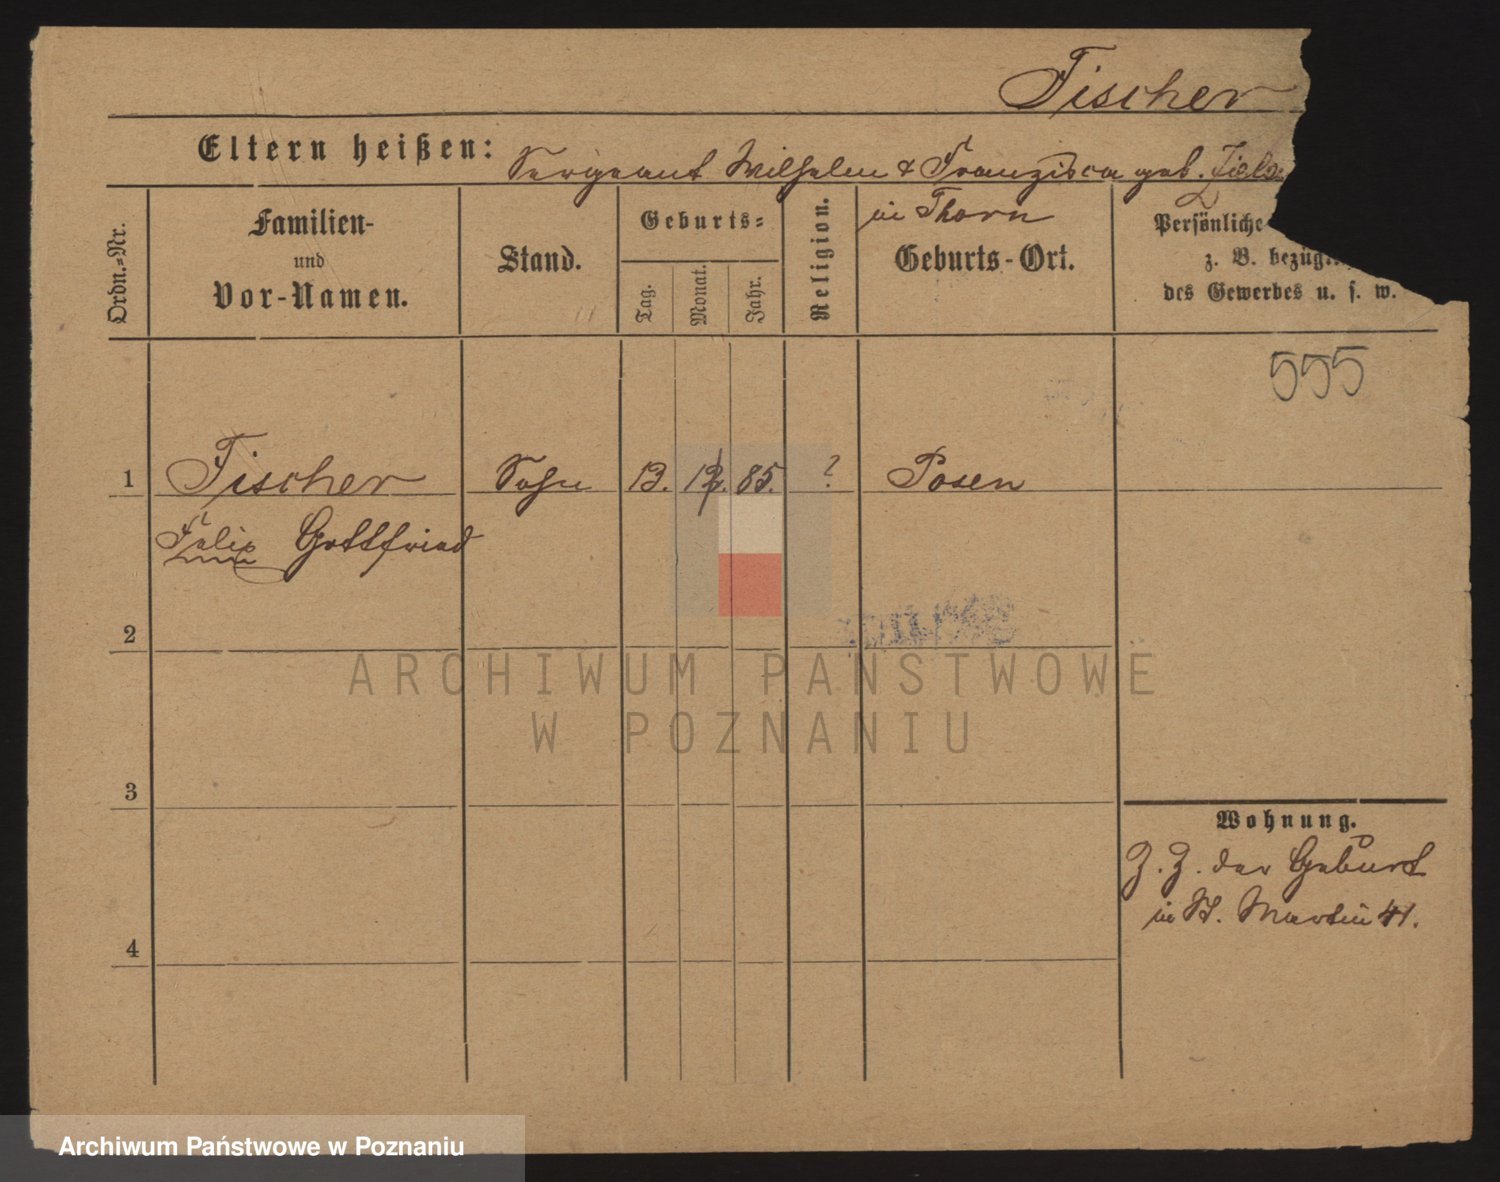 Fischer
Eltern heißen: Sergeant Wilhelm & Franzisca geb.
in Thorn
Ordn.-Nr.
Familien-
und
Vor-Namen.
Stand.
Geburts-
Tag.
Monat.
Jahr.
Religion.
Geburts-Ort.
Persönliche
z. B. bezügl.
des Gewerbes u. s. w.
555
1 Fischer Sohn 13. 12. 85. ? Posen
Felix Gottfried
2
ARCHIWUM PAŃSTWOWE
W POZNANIU
3
Wohnung.
Z. Z. der Geburt
in St. Martin 41.
4
Archiwum Państwowe w Poznaniu